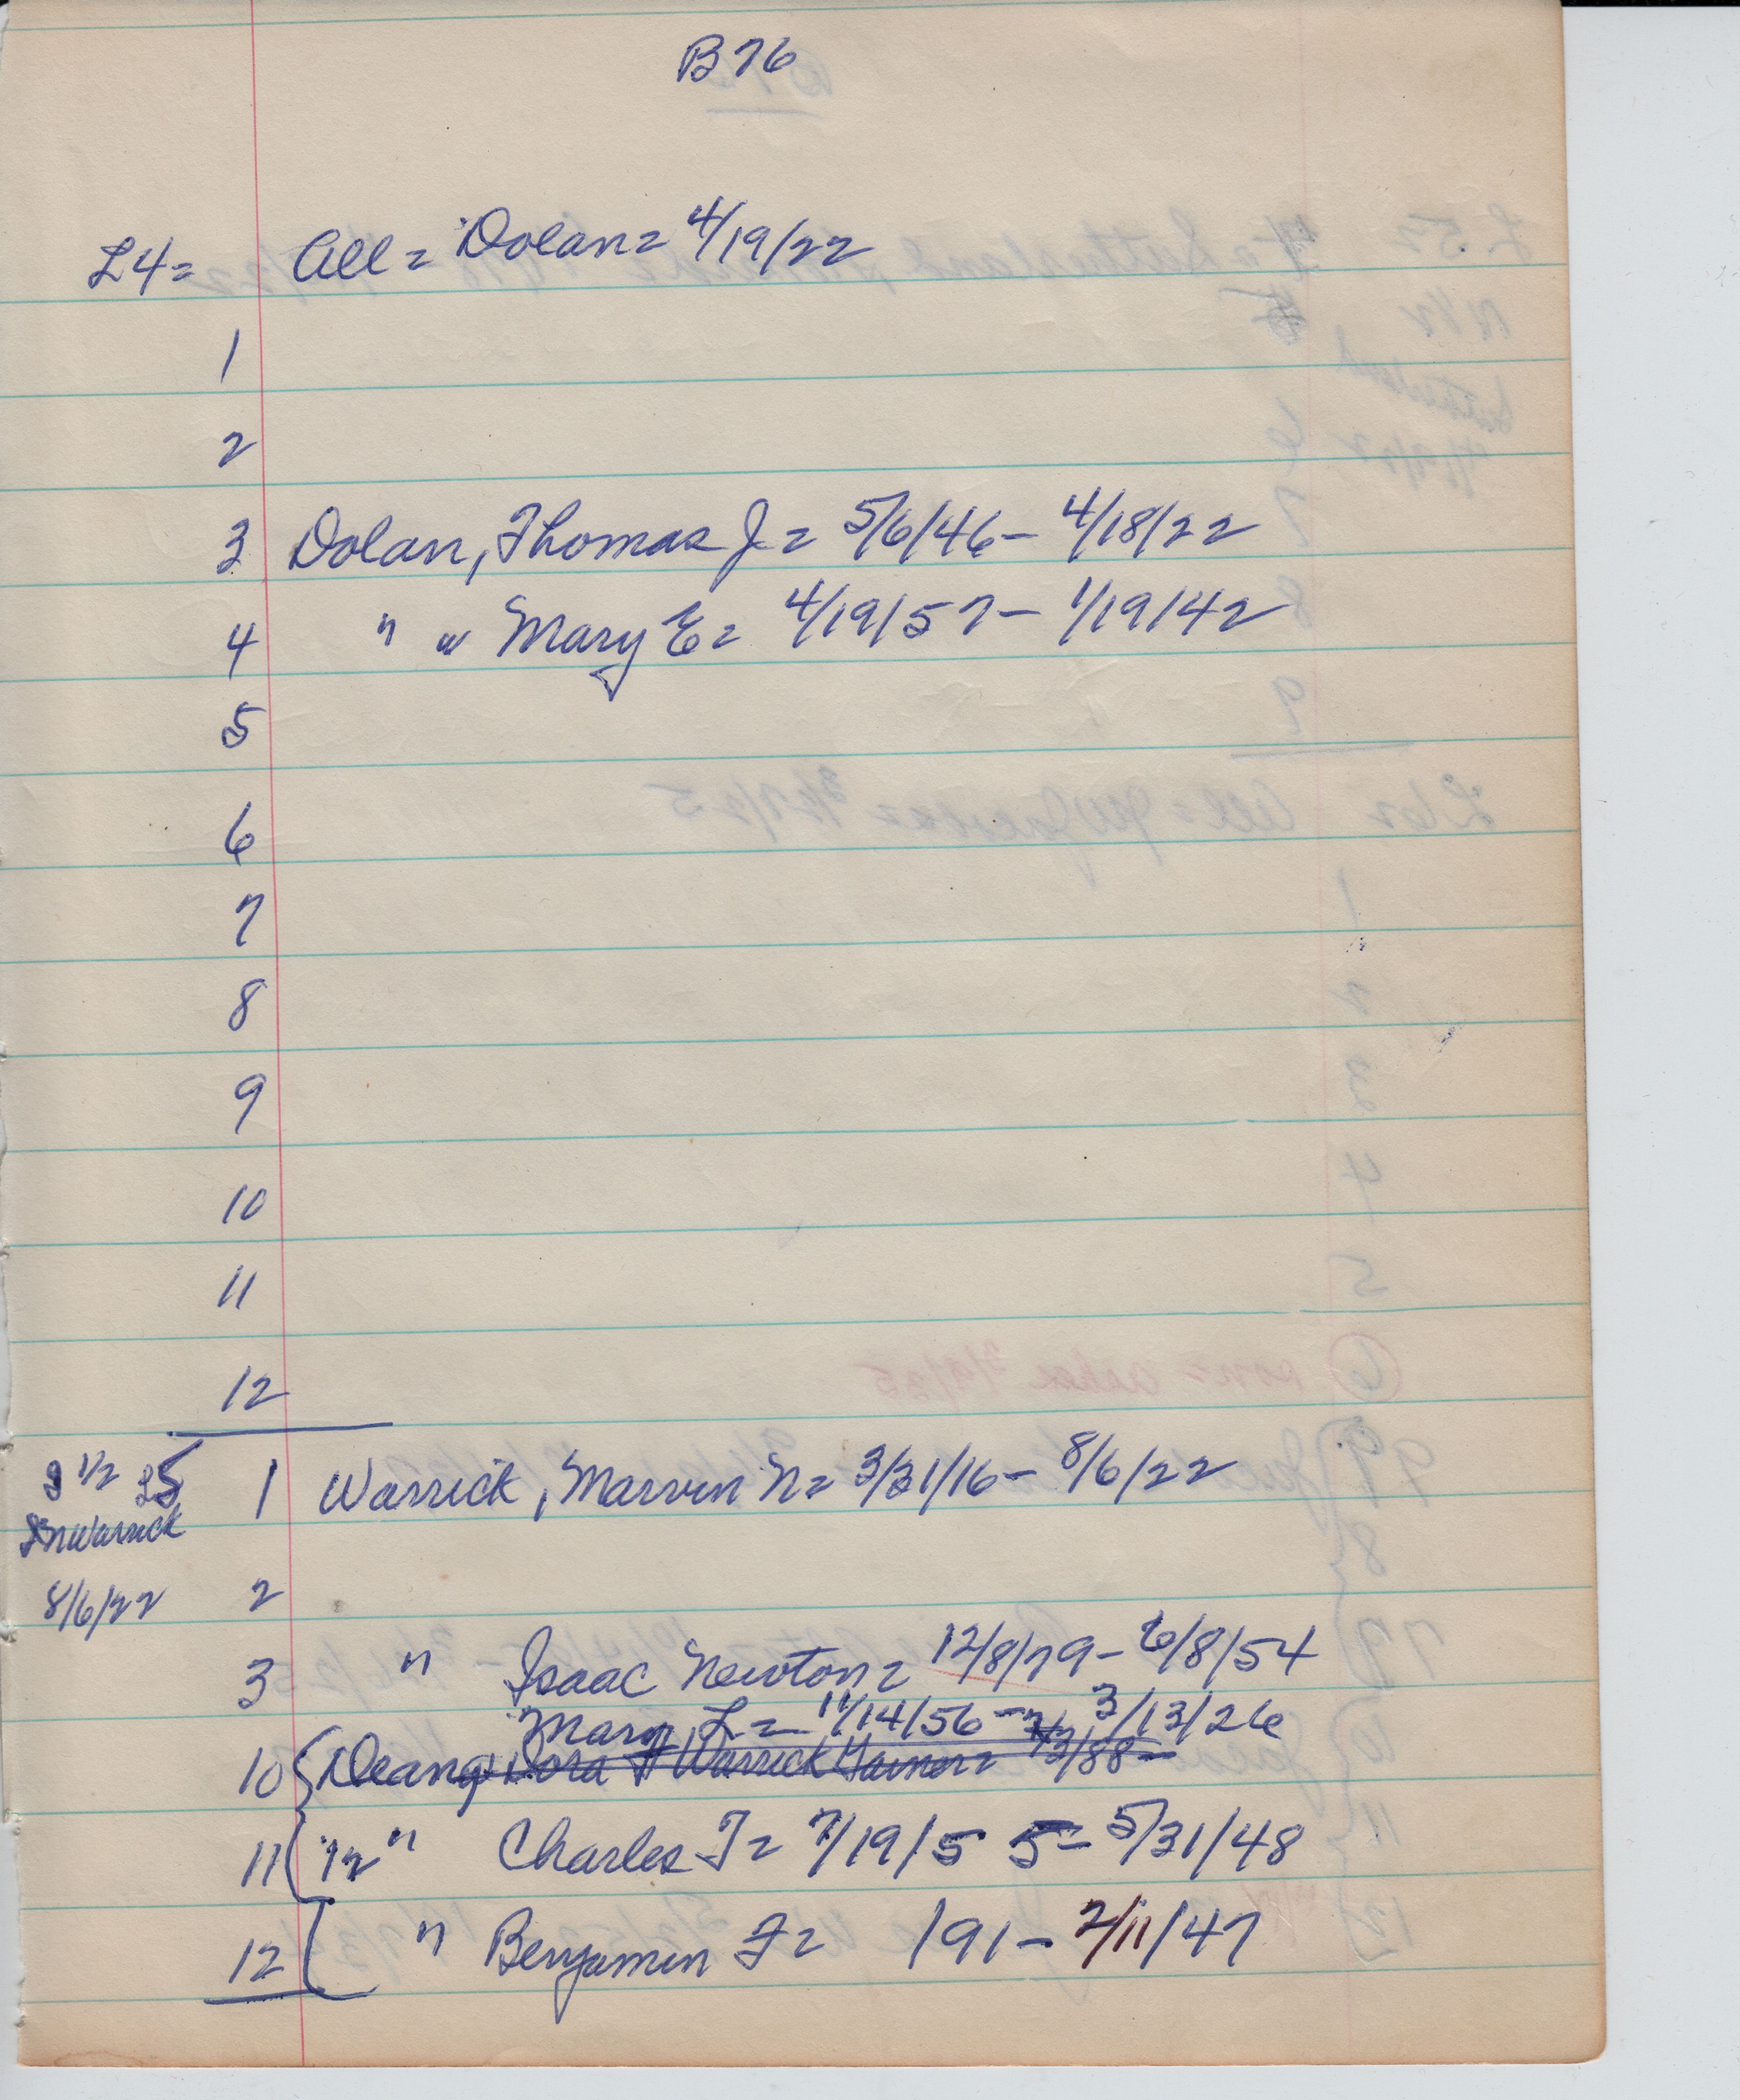 B76
L4= All = Dolan = 4/19/22
1
2
3 Dolan, Thomas J = 5/6/46 - 4/18/22
4 " " Mary E = 4/19/57 - 1/19/42
5
6
7
8
9
10
11
12
1/2 L5 1 Warrick, Marvin N = 3/31/16 - 8/6/22
Warrick
8/6/22 2
3 " Isaac Newton = 12/8/79 - 6/8/54
Mary L = 11/14/56 - 3/13/26
10 { Deang Dora Warrick = 4/3/88 -
11 { 12 " Charles T = 7/19/55 - 5/31/48
12 { " Benjamin F = /91 - 2/11/47